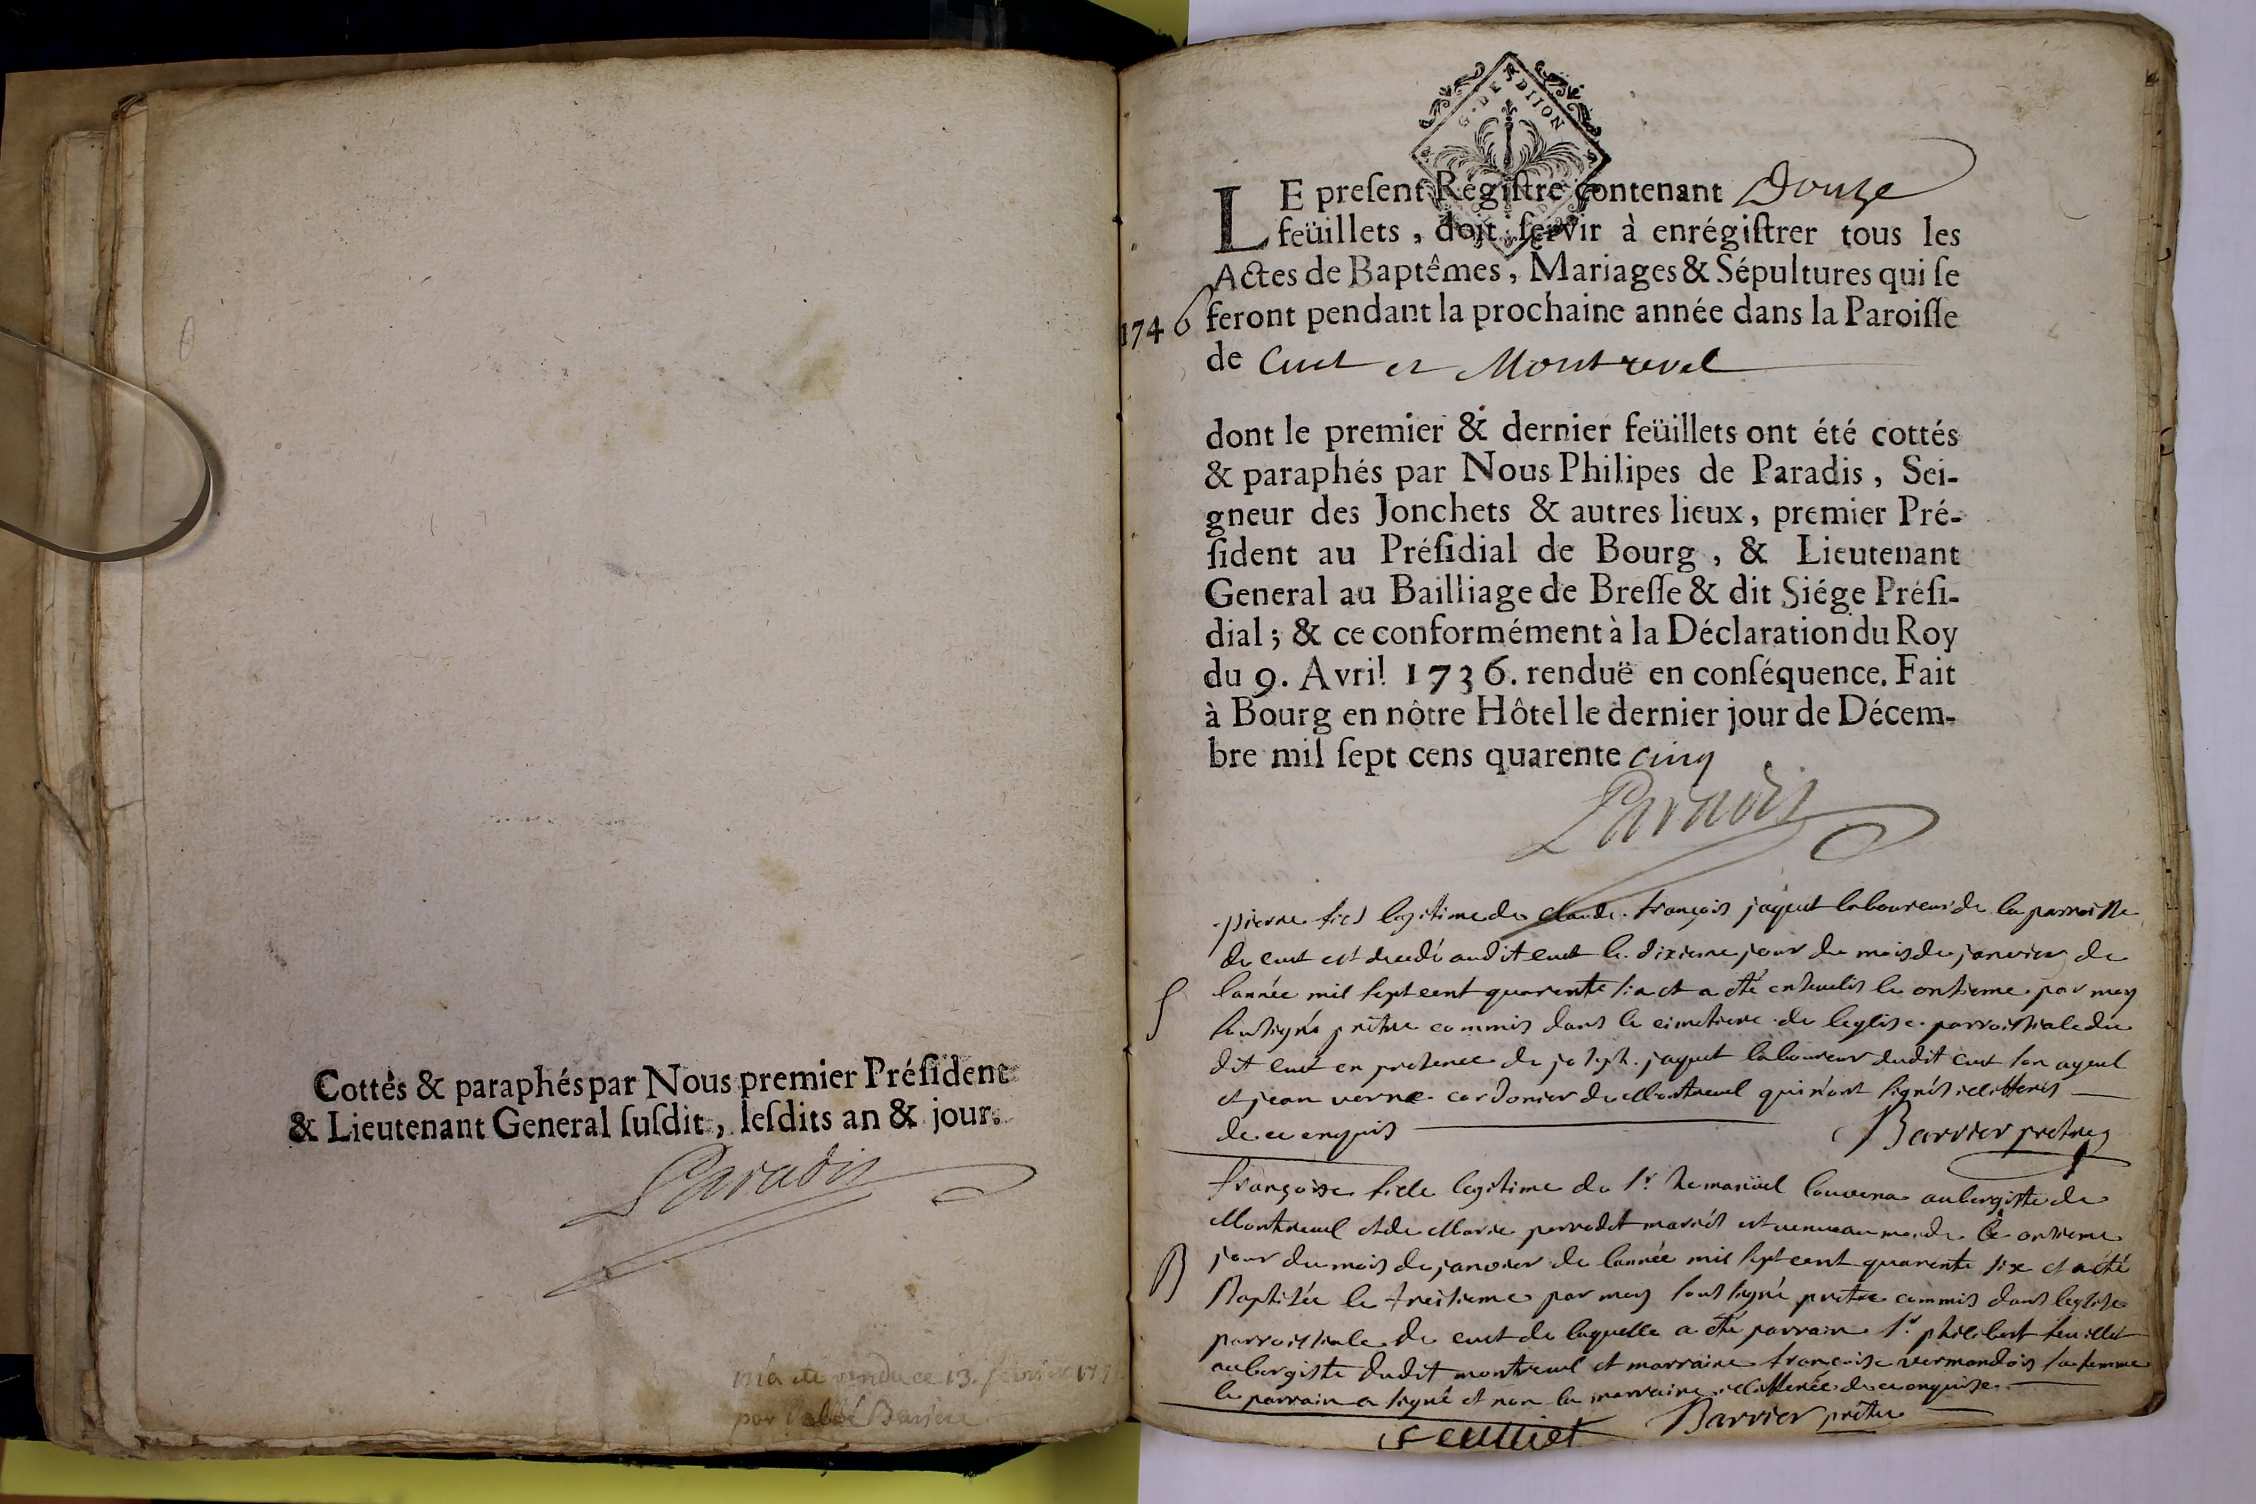 Cottés & paraphés par Nous premier Préſident
& Lieutenant General ſuſdit, leſdits an & jour.
Paradis
m'a été rendu ce 13. février 17
par l'abbé Bariere
G. DE DIJON
LE preſent Régiſtre contenant Douze
feüillets, doit ſervir à enrégiſtrer tous les
Actes de Baptêmes, Mariages & Sépultures qui ſe
1746 feront pendant la prochaine année dans la Paroiſſe
de Cuet et Montrevel
dont le premier & dernier feüillets ont été cottés
& paraphés par Nous Philipes de Paradis, Sei-
gneur des Jonchets & autres lieux, premier Pré-
ſident au Préſidial de Bourg, & Lieutenant
General au Bailliage de Breſſe & dit Siége Préſi-
dial; & ce conformément à la Déclaration du Roy
du 9. Avril 1736. renduë en conſéquence. Fait
à Bourg en nôtre Hôtel le dernier jour de Décem-
bre mil ſept cens quarente cinq
Paradis
pierre fils legitime de claude françois jaquet laboureur de la parroisse
de cuet est decedé audit cuet le dixieme jour du mois de janvier de
S lannée mil sept cent quarente six et a été entevelis le ontieme par moy
soussigné prêtre commis dans le cimetiere de leglise parroissiale du
dit cuet en presence de joseph jaquet laboureur dudit cuet son ayeul
et jean verne cordonier de Montreuel qui n'ont signés illitterés
de ce enquis Barrier pretre
françoise fille legitime de Sr hemanüel louvena aubergiste de
Montreuel et de Marie perrodet mariés est venue au monde le ontieme
B jour du mois de janvier de lannée mil sept cent quarente six et a été
Baptisée le treisieme par moy sous signé pretre commis dans leglise
parroissiale de cuet de laquelle a été parrain Sr philibert feuillet
aubergiste dudit montreuel et marraine francoise vermandois sa femme
le parrain a signé et non la marraine illitterée de ce enquise
feulliet Barrier pretre